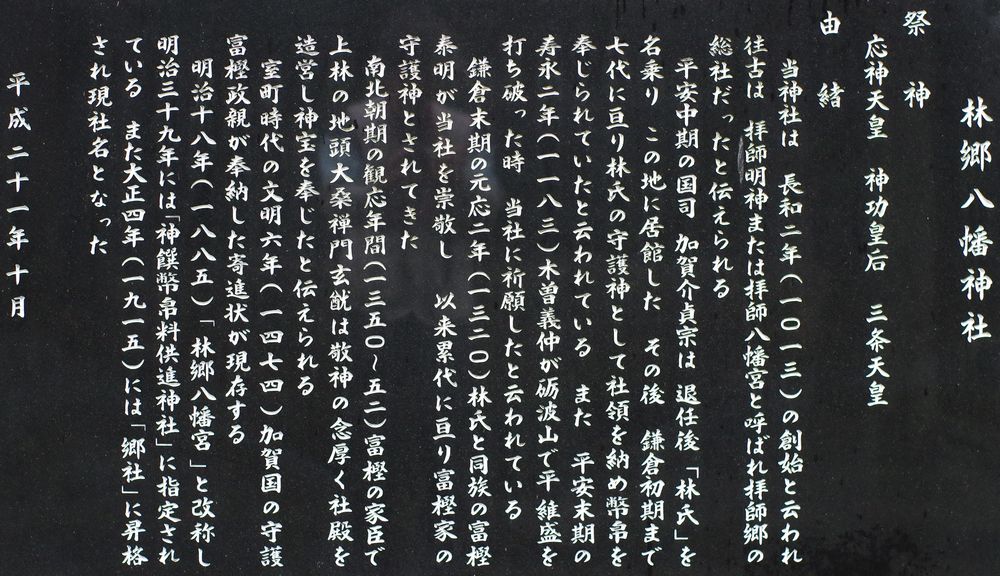 林郷八幡神社
祭神
応神天皇　神功皇后　三条天皇
由緒
当神社は　長和二年(一〇一三)の創始と云われ
往古は　拝師明神または拝師八幡宮と呼ばれ拝師郷の
総社だったと伝えられる
平安中期の国司　加賀介貞宗は　退任後「林氏」を
名乗り　この地に居館した　その後　鎌倉初期まで
七代に亘り林氏の守護神として社領を納め幣帛を
奉じられていたと云われている　また　平安末期の
寿永二年(一一八三)木曽義仲が砺波山で平　維盛を
打ち破った時　当社に祈願したと云われている
鎌倉末期の元応二年(一三二〇)林氏と同族の富樫
泰明が当社を崇敬し　以来累代に亘り富樫家の
守護神とされてきた
南北朝期の観応年間(一三五〇～五二)富樫の家臣で
上林の地頭大桑禅門玄猷は敬神の念厚く社殿を
造営し神宝を奉じたと伝えられる
室町時代の文明六年(一四七四)加賀国の守護
富樫政親が奉納した寄進状が現存する
明治十八年(一八八五)「林郷八幡宮」と改称し
明治三十九年には「神饌幣帛料供進神社」に指定され
ている　また大正四年(一九一五)には「郷社」に昇格
され現社名となった
平成二十一年十月